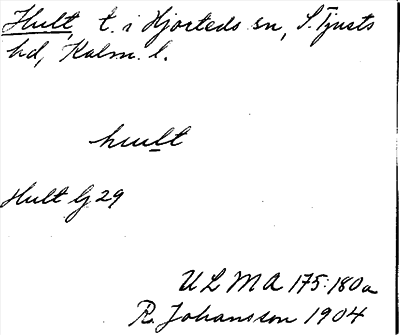 Hult, t. i Hjorteds sn, S. Tjusts
hd, Kalm. l.
hult
Hult lj 29
ULMA 175:180a
R. Johansson 1904